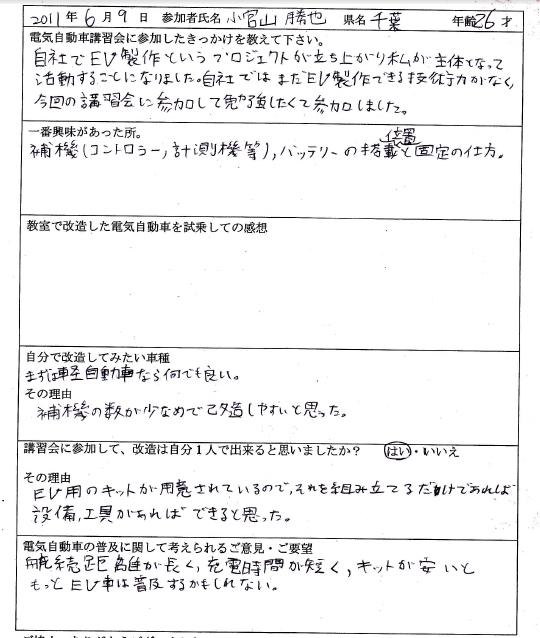 2011年6月9日 参加者氏名 小官山 勝也 県名 千葉 年齢26才
電気自動車講習会に参加したきっかけを教えて下さい。
自社でEV製作というプロジェクトが立ち上がり私が主体となって
活動することになりました。自社ではまだEV製作できる技術力がなく、
今回の講習会に参加して勉強したくて参加しました。
一番興味があった所。
位置
補機(コントローラー,計測機等),バッテリーの搭載と固定の仕方。
教室で改造した電気自動車を試乗しての感想
自分で改造してみたい車種
まずは軽自動車なら何でも良い。
その理由
補機の数が少なめで改造しやすいと思った。
講習会に参加して、改造は自分1人で出来ると思いましたか? はい・いいえ
その理由
EV用のキットが用意されているので、それを組み立てるだけであれば
設備,工具があればできると思った。
電気自動車の普及に関して考えられるご意見・ご要望
航続距離が長く,充電時間が短く,キットが安いと
もっとEV車は普及するかもしれない。